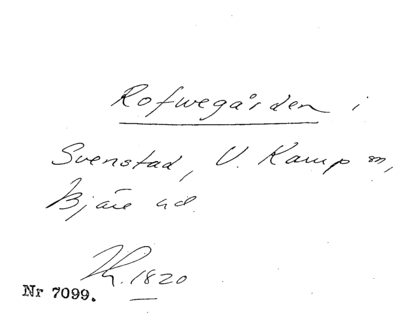 Rofwegården i
Svenstad, V. Karup sn,
Bjäre hd.
Kr. 1820
Nr 7099.